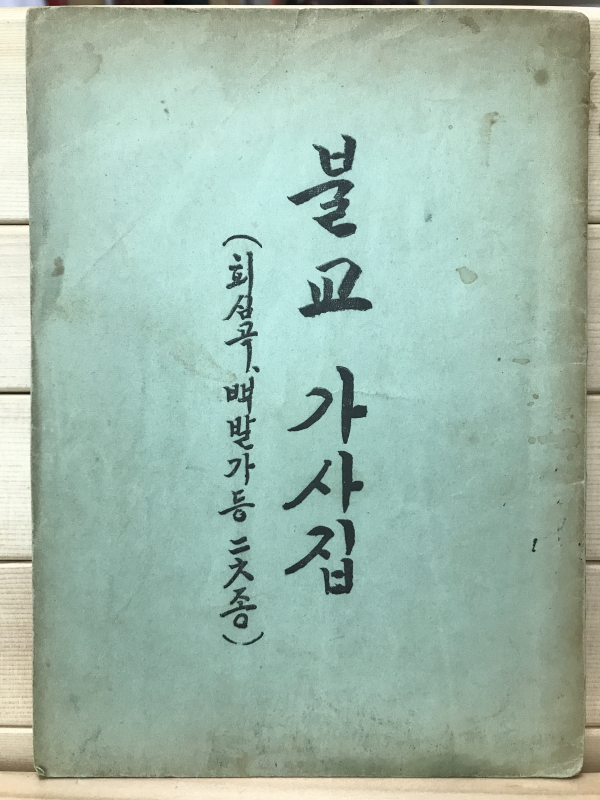 불교 가사집
(회심곡、백발가등 二六종)